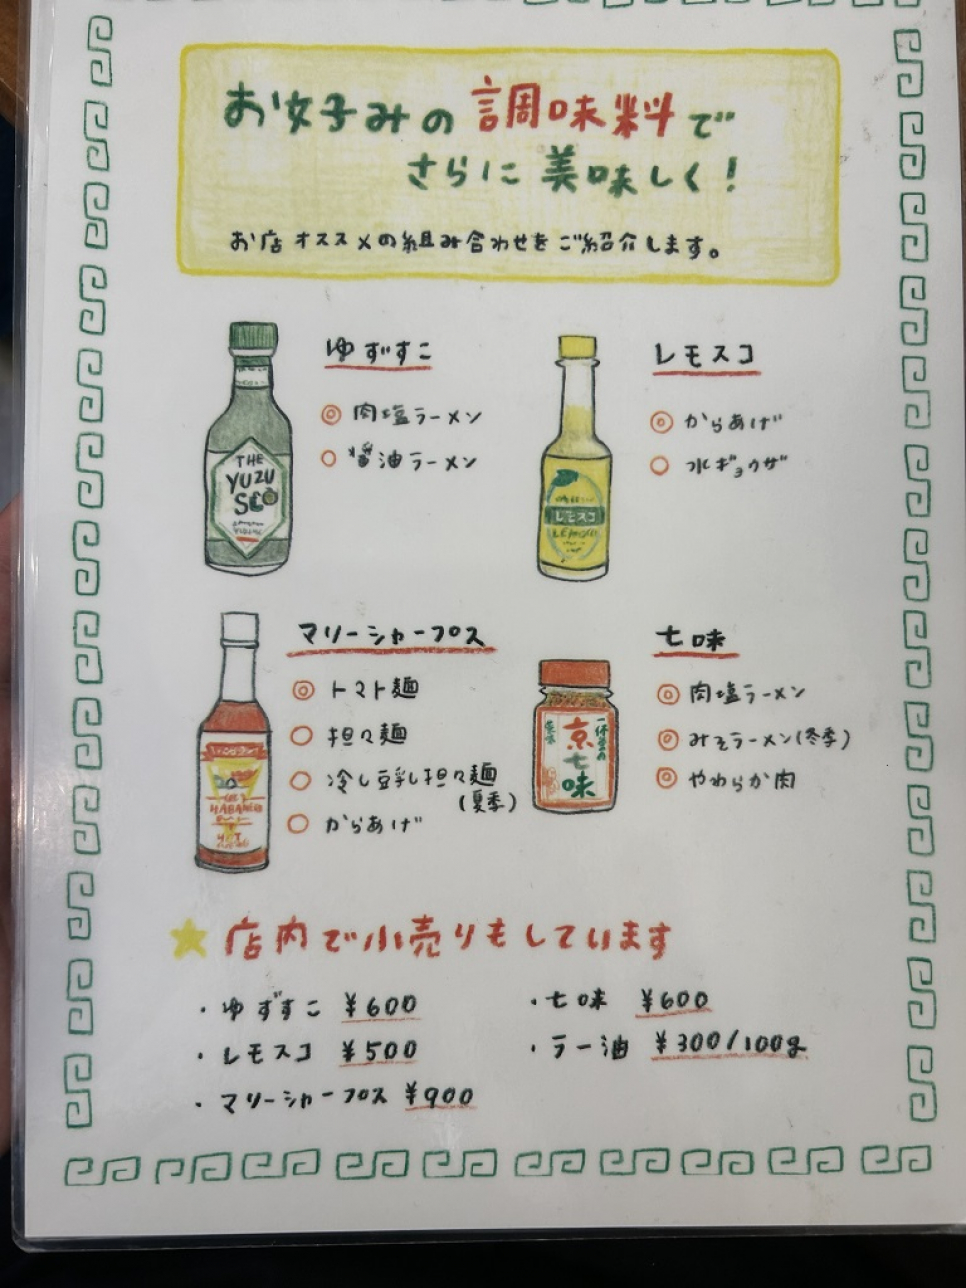 お好みの調味料で
さらに美味しく!
お店オススメの組み合わせをご紹介します。
ゆずすこ
◎ 肉塩ラーメン
○ 醤油ラーメン
THE
YUZU
SCO
レモスコ
◎ からあげ
○ 水ギョウザ
レモスコ
LEMOSCO
マリーシャープス
◎ トマト麺
○ 担々麺
○ 冷し豆乳担々麺
(夏季)
○ からあげ
HABANERO
HOT
七味
◎ 肉塩ラーメン
◎ みそラーメン(冬季)
◎ やわらか肉
京
七
味
★店内で小売りもしています
・ゆずすこ ¥600
・レモスコ ¥500
・マリーシャープス ¥900
・七味 ¥600
・ラー油 ¥300/100g